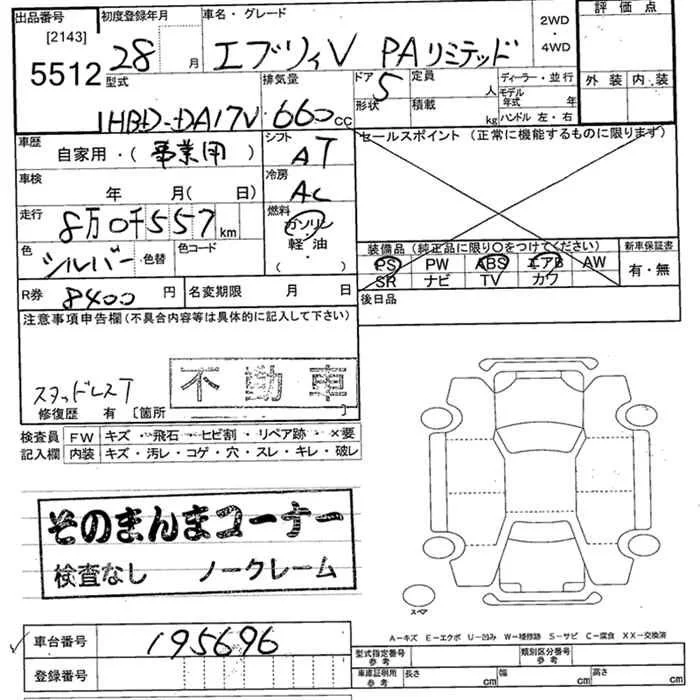 出品番号 初度登録年月 車名・グレード 2WD・4WD 評価点
[2143]
5512 28 月 エブリィV PAリミテッド
型式 排気量 ドア 5 定員 人 ディーラー・並行 外装 内装
HBD-DA17V 660 CC 形状 積載 kg モデル年式 年
ハンドル 左・右
車歴 自家用・(事業用) シフト AT セールスポイント (正常に機能するものに限ります)
車検 年 月( 日) 冷房 AC
走行 8万0千557 km 燃料 ガソリン
軽・油
( )
色 シルバー ・色替 色コード 装備品 (純正品に限り○をつけてください) 新車保証書
PS PW ABS エアB AW 有・無
SR ナビ TV カワ
R券 8400 円 名変期限 月 日 後日品
注意事項申告欄(不具合内容等は具体的に記入して下さい)
スタッドレスT 不動車
修復歴 有 〔箇所 〕
検査員 FW キズ・飛石・ヒビ割・リペア跡・×要
記入欄 内装 キズ・汚レ・コゲ・穴・スレ・キレ・破レ
そのまんまコーナー
検査なし ノークレーム
スペア
A-キズ E-エクボ U-凹み W-補修跡 S-サビ C-腐食 XX-交換済
車台番号 195696
型式指定番号 参考 類別区分番号 参考
登録番号 車庫証明用 参考 長さ cm 幅 cm 高さ cm